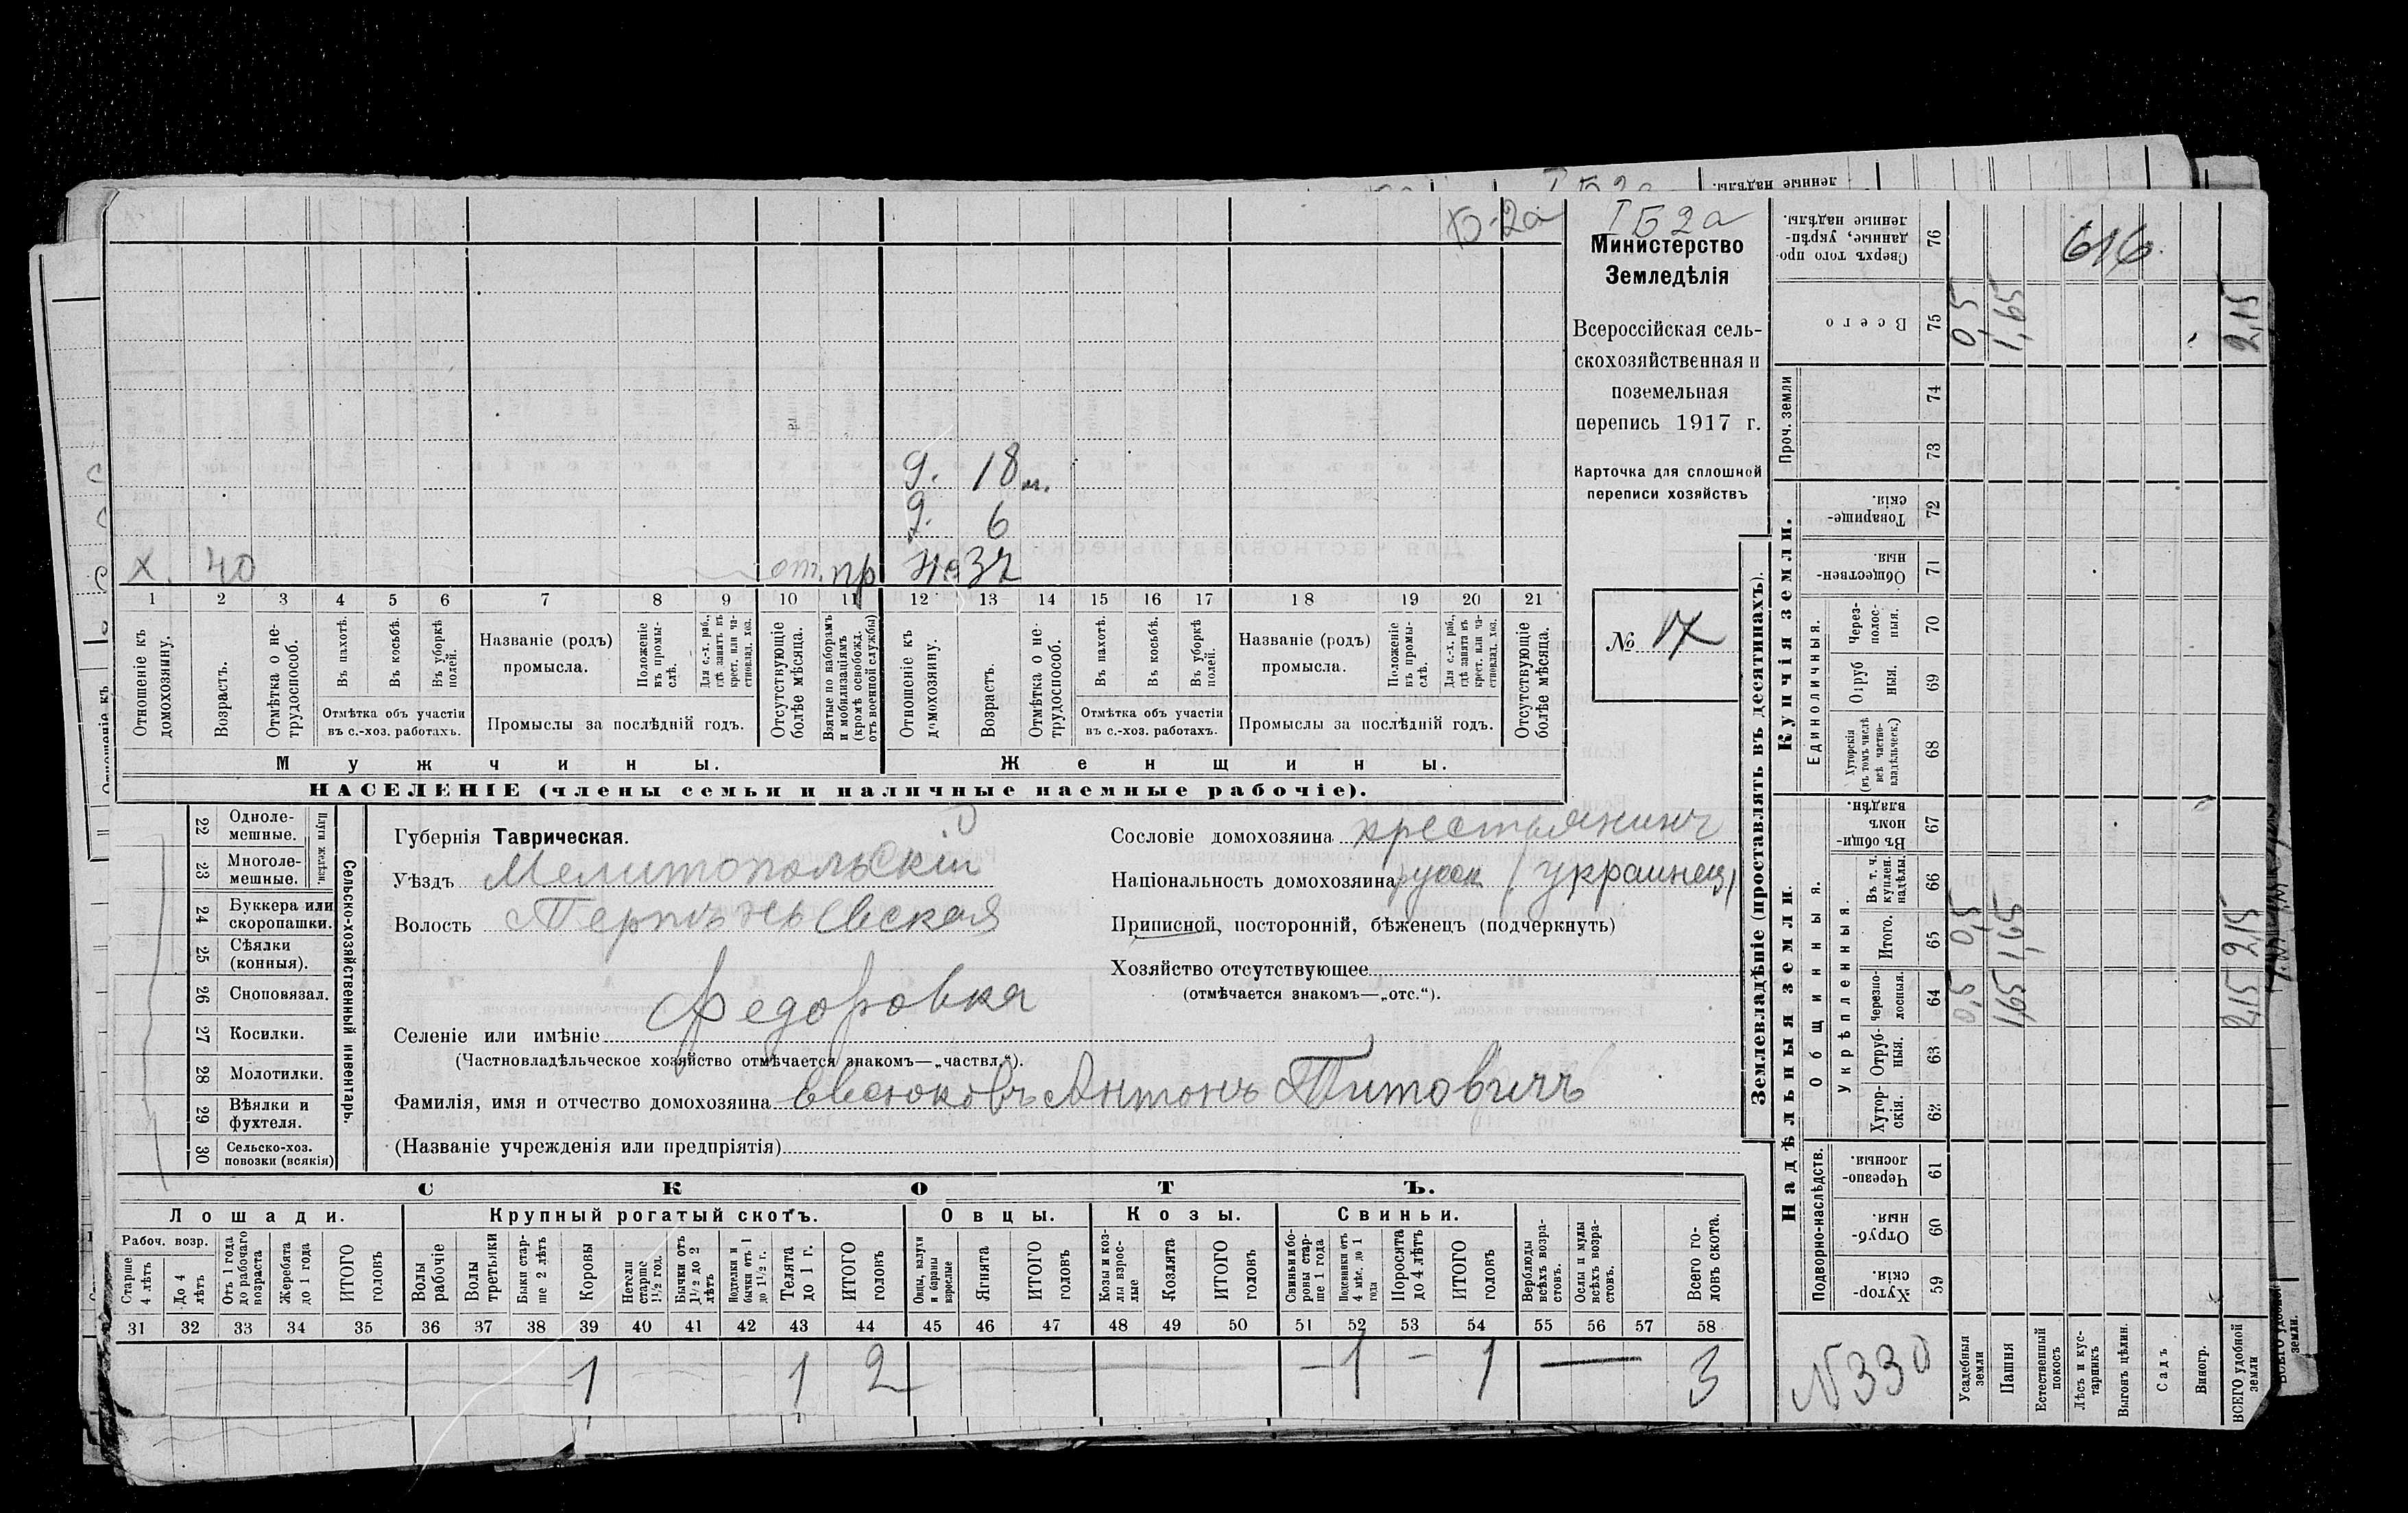 Б-2а
IБ2а
Министерство
Земледѣлія
Всероссійская сель-
скохозяйственная и
поземельная
перепись 1917 г.
Карточка для сплошной
переписи хозяйствъ
№ 17
д. 18 м.
д. 6
х. 40 от. пр же 37
1 2 3 4 5 6 7 8 9 10 11 12 13 14 15 16 17 18 19 20 21
Отношеніе къ домохозяину.
Возрастъ.
Отмѣтка о не-трудоспособ.
Въ пахотѣ.
Въ косьбѣ.
Въ уборкѣ полей.
Отмѣтка объ участіи
въ с.-хоз. работахъ.
Названіе (родъ)
промысла.
Положеніе въ промы-слѣ.
Для с.-х. раб., гдѣ занятъ въ крест. или ча-стновлад. хоз.
Промыслы за послѣдній годъ.
Отсутствующіе болѣе мѣсяца.
Взятые по наборамъ и мобилизаціямъ (кромѣ освобожд. отъ военной службы)
Отношеніе къ домохозяину.
Возрастъ.
Отмѣтка о не-трудоспособ.
Въ пахотѣ.
Въ косьбѣ.
Въ уборкѣ полей.
Отмѣтка объ участіи
въ с.-хоз. работахъ.
Названіе (родъ)
промысла.
Положеніе въ промы-слѣ.
Для с.-х. раб., гдѣ занята въ крест. или ча-стновлад. хоз.
Промыслы за послѣдній годъ.
Отсутствующіе болѣе мѣсяца.
Мужчины.
Женщины.
НАСЕЛЕНІЕ (члены семьи и наличные наемные рабочіе).
22 Одноле-мешные.
23 Многоле-мешные.
Плуги желѣзн.
24 Буккера или скоропашки.
25 Сѣялки (конныя).
26 Сноповязал.
27 Косилки.
28 Молотилки.
29 Вѣялки и фухтеля.
30 Сельско-хоз. повозки (всякія)
Сельско-хозяйственный инвентарь.
Губернія Таврическая.
Уѣздъ Мелитопольскій
Волость Терпѣньевская
Селеніе или имѣніе Федоровка
(Частновладѣльческое хозяйство отмѣчается знакомъ—„частвл.“).
Фамилія, имя и отчество домохозяина Евсюковъ Антонъ Титовичъ
(Названіе учрежденія или предпріятія)
Сословіе домохозяина крестьянинъ
Національность домохозяина русск (украинец)
Приписной, посторонній, бѣженецъ (подчеркнуть)
Хозяйство отсутствующее
(отмѣчается знакомъ—„отс.“).
СКОТЪ.
Лошади. Крупный рогатый скотъ. Овцы. Козы. Свиньи.
Рабоч. возр.
Старше 4 лѣтъ
До 4 лѣтъ
Отъ 1 года до рабочаго возраста
Жеребята до 1 года
ИТОГО головъ
Волы рабочіе
Волы третьяки
Быки стар-ше 2 лѣтъ
Коровы
Нетели старше 1½ год.
Бычки отъ 1½ до 2 лѣтъ
Подтелки и бычки отъ 1 до 1½ г.
Телята до 1 г.
ИТОГО головъ
Овцы, валухи и бараны взрослые
Ягнята
ИТОГО головъ
Козы и коз-лы взрос-лые
Козлята
ИТОГО головъ
Свиньи и бо-ровы стар-ше 1 года
Подсвинки отъ 4 мѣс. до 1 года
Поросята до 4 лѣтъ
ИТОГО головъ
Верблюды всѣхъ возра-стовъ.
Ослы и мулы всѣхъ возра-стовъ.
Всего го-ловъ скота.
31 32 33 34 35 36 37 38 39 40 41 42 43 44 45 46 47 48 49 50 51 52 53 54 55 56 57 58
1 1 2 — 1 — 1 — 3
Землевладѣніе (проставлять въ десятинахъ).
Надѣльныя земли.
Купчія земли.
Проч. земли
Подворно-наслѣдств.
Общинныя.
Укрѣпленныя.
Единоличныя.
Сверхъ того про-данные, укрѣп-ленные надѣлы. 76
Всего 75
74
73
Товарище-скія. 72
Обществен-ныя. 71
Через-полос-ныя. 70
Отруб ныя. 69
Хуторскія (въ томъ числѣ всѣ частно-владѣльческ.) 68
Въ общи-номъ владѣн. 67
Въ т. ч. куплен. надѣлы. 66
Итого. 65
Черезпо-лосныя. 64
Отруб-ныя. 63
Хутор-скія. 62
Черезпо-лосныя. 61
Отруб-ныя. 60
Хутор-скія. 59
616.
0,5 1,65 2,15
0,5 1,65 2,15
0,5 1,65 2,15
N330
Усадебныя земли
Пашня
Естественный покосъ
Лѣсъ и кус-тарникъ
Выгонъ цѣлин.
Садъ
Виногр.
ВСЕГО удобной земли